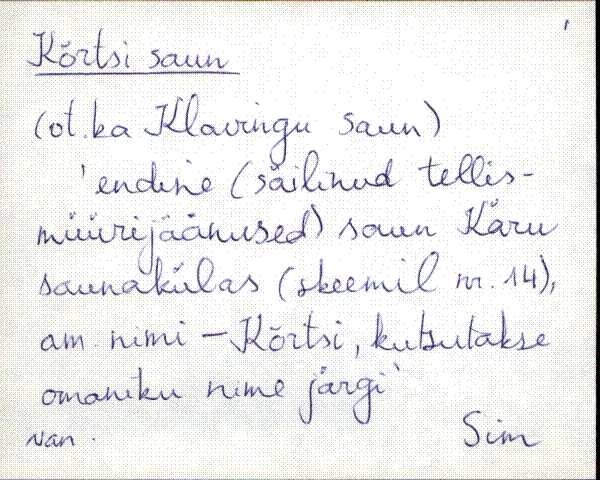 Kõrtsi saun
(ot. ka Klavingu saun)
'endine (säilinud tellis-
müürijäänused) saun Käru
saunakülas (skeemil nr. 14),
am. nimi – Kõrtsi, kutsutakse
omaniku nime järgi'
van. Sim